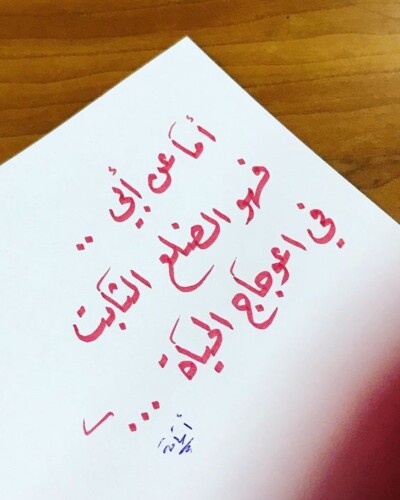 أما عن أبي ..
فهو الضلع الثابت
في اعوجاج الحياة ...